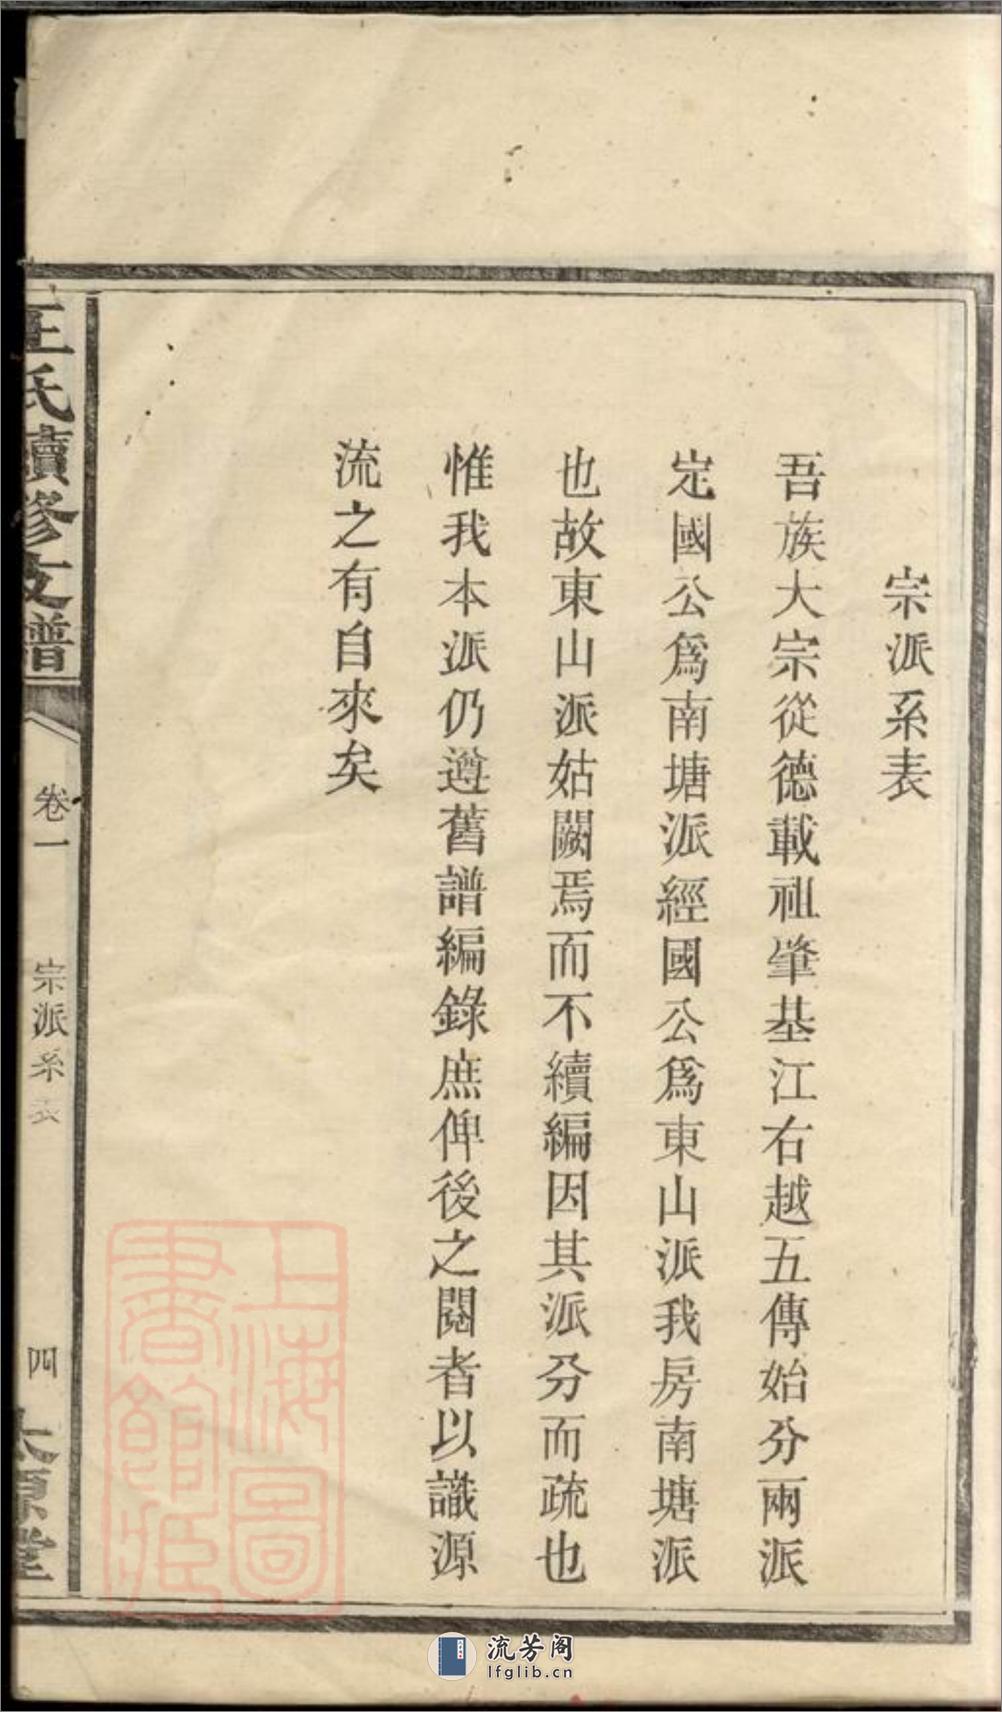 宗派系表
吾族大宗從德載祖肇基江右越五傳始分兩派
定國公爲南塘派經國公爲東山派我房南塘派
也故東山派姑闕焉而不續編因其派分而疏也
惟我本派仍遵舊譜編錄庶俾後之閱者以識源
流之有自來矣
王氏續修支譜
卷一
宗派系表
四
太原堂
上海圖
書館藏
流芳阁
lfglib.cn